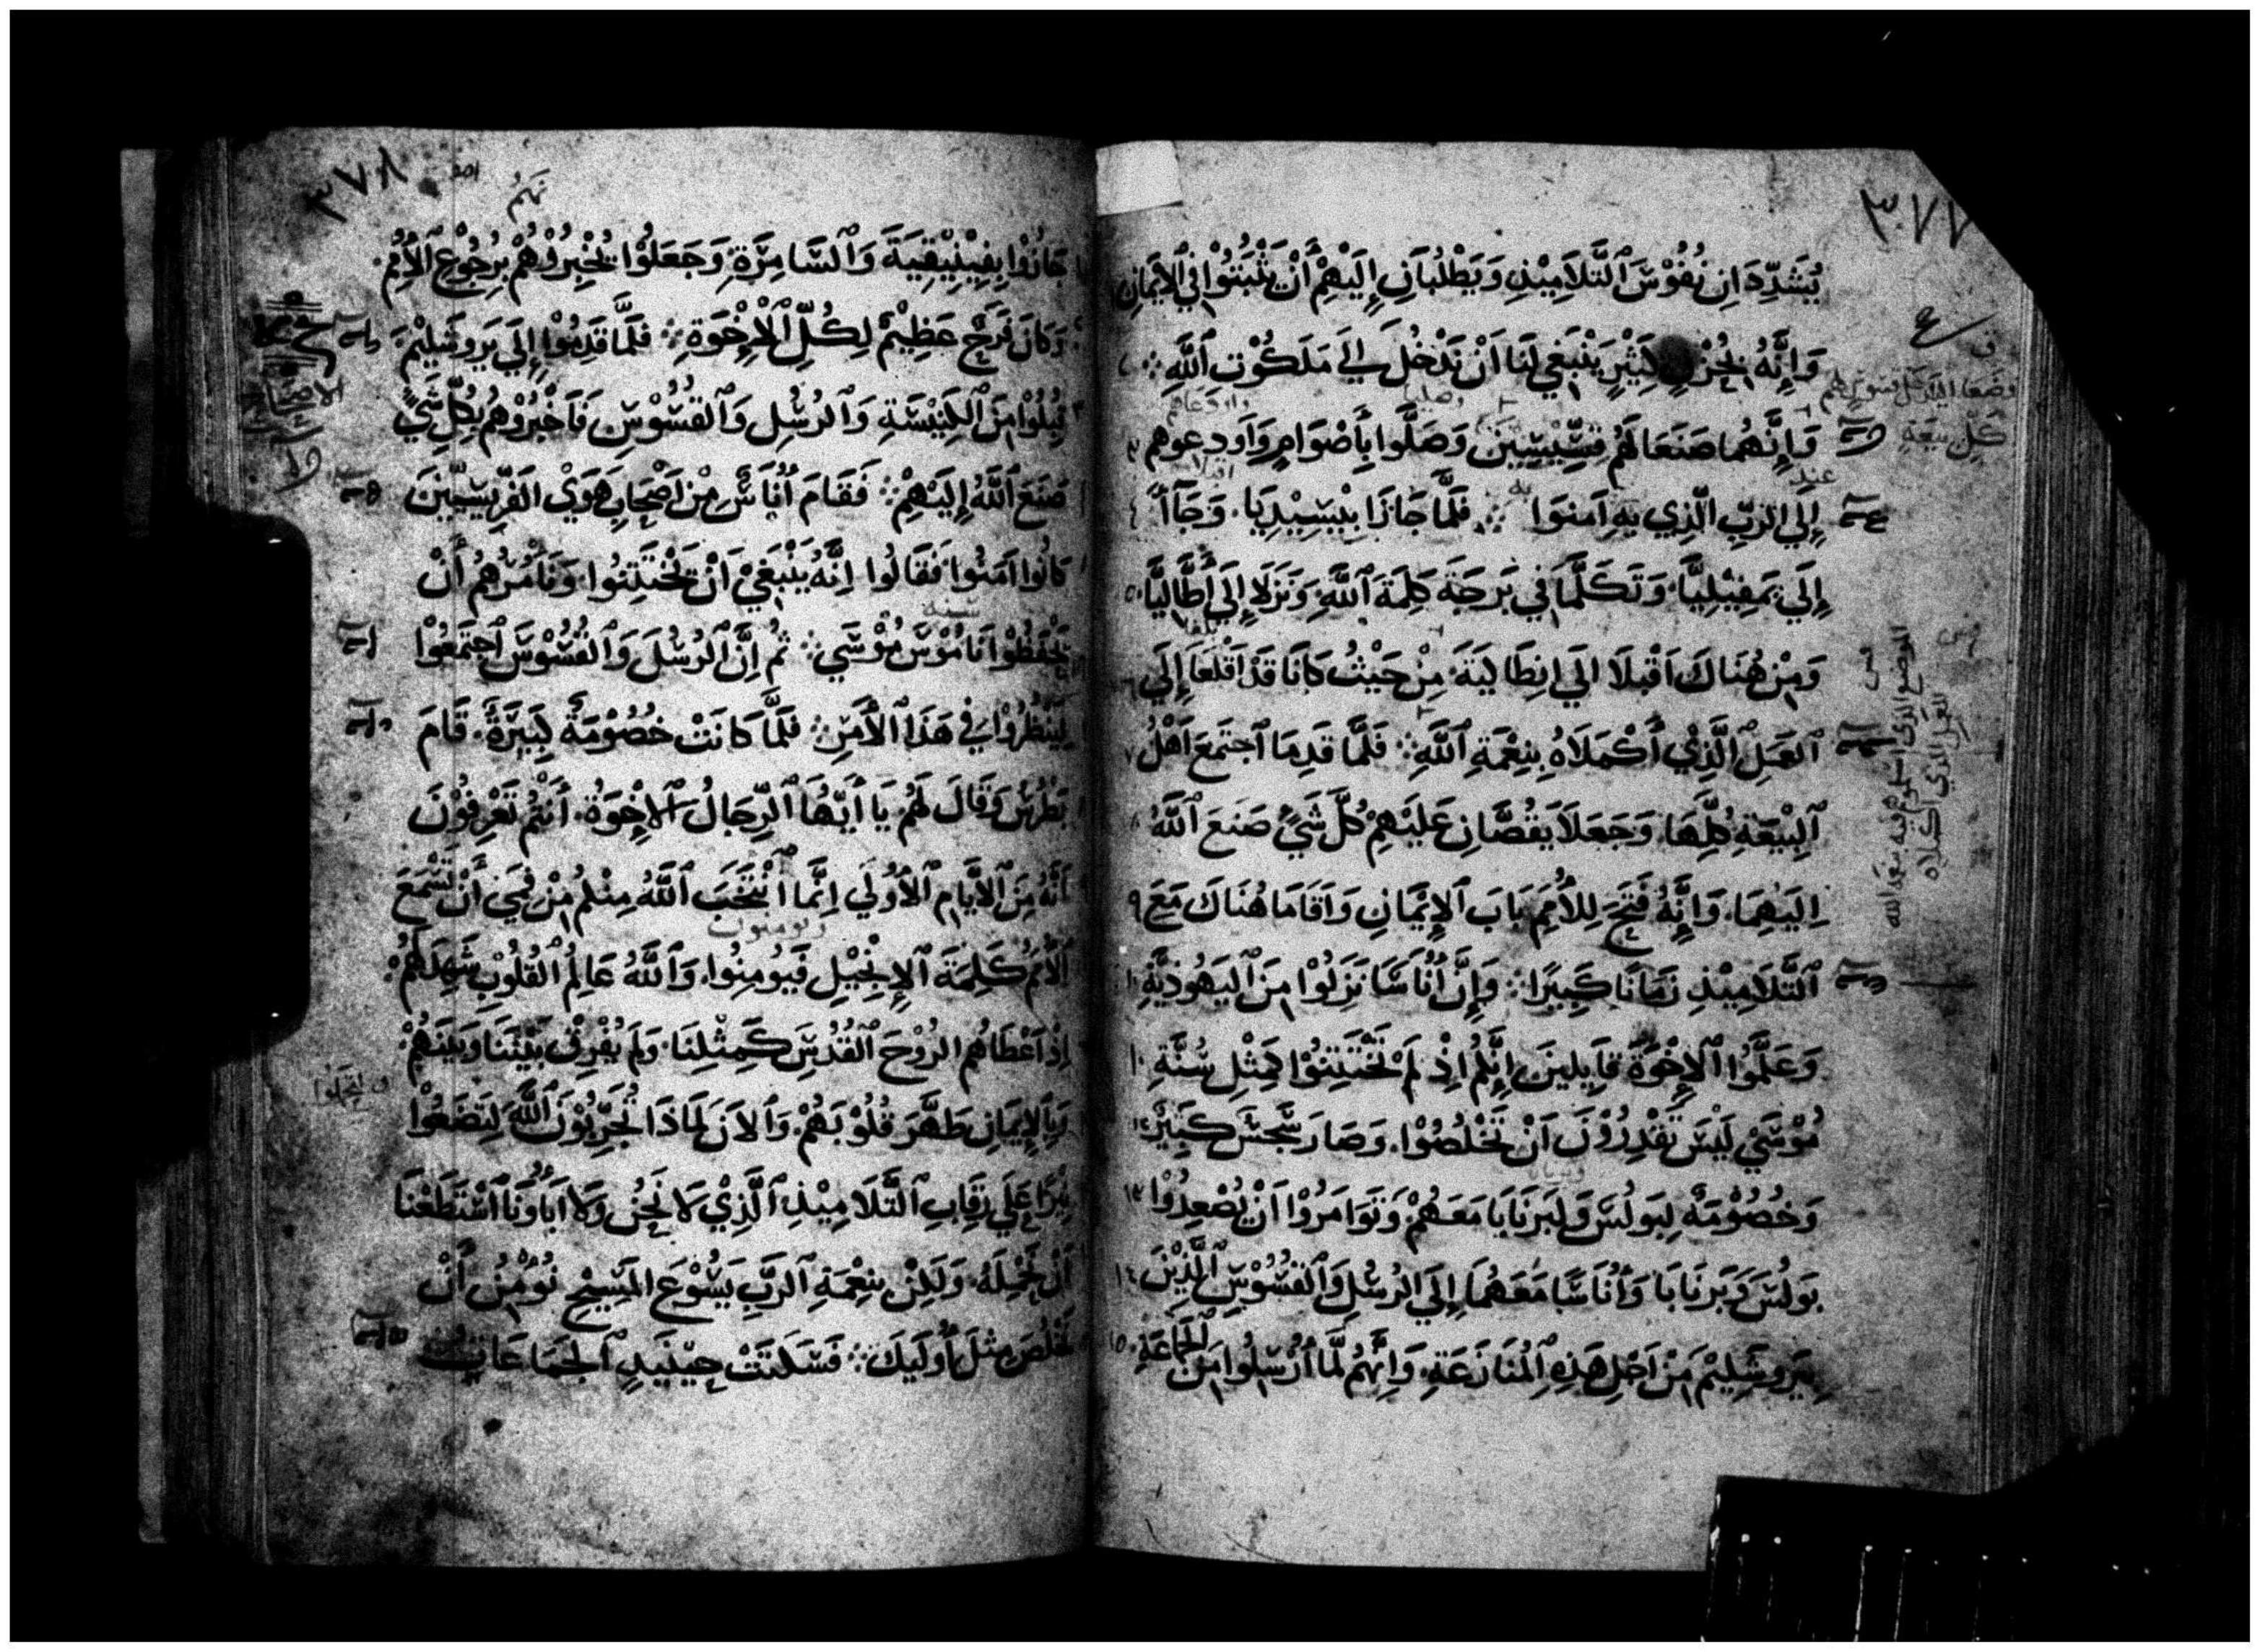 ٣٧٧
يُشَدِّدَانِ نُفُوْسَ ٱلتَّلَامِيْذِ وَيَطْلُبَانِ إِلَيْهِمْ أَنْ يَثْبُتُوْا فِي ٱلْإِيمَانِ
وَإِنَّهُ بِحُزْنٍ كَثِيْرٍ يَنْبَغِي لَنَا أَنْ نَدْخُلَ إِلَي مَلَكُوْتِ ٱللَّهِ
وَإِنَّهُمَا صَنَعَا لَهُمْ قِسِّيْسِيْنَ وَصَلَّوا بِأَصْوَامٍ وَأَودعوهم
إِلَي الرَّبِّ الَّذِي بِهِ اَمنوَا ۞ فَلَمَّا جَازَا بِبْسِيْدِيَا. وَجَآأَ
إِلَي بَمفِيْلِيَّا. وَتَكَلَّمَا فِي بَرجَةَ كَلِمَةَ ٱللَّهِ. وَنَزَلَا إِلَي أَطَّالِيَّا
وَمِنْ هُنَاكَ اَقْبلَا الَي انِطَاليَةَ مِنْ حَيْثُ كَانَا قَدْ اَقْلَعَا إِلَي
ٱلعَمَلِ ٱلَّذِيْ أَكْمَلَاهُ بِنِعْمَةِ ٱللَّهِ ۞ فَلَمَّا قَدِمَا ٱجتَمَعَ أَهْلُ
ٱلْبِيْعَةِ كُلِّهَا. وَجَعَلَا يَقُصَّانِ عَلَيْهِمْ كُلَّ شَيْءٍ صَنَعَ ٱللَّهُ
اِلَيْهِمَا. وَإِنَّهُ فَتَحَ لِلأُمَمِ بَابَ ٱلْإِيْمَانِ وَاَقَامَا هُنَاكَ مَعَ
ٱلتَّلَامِيْذِ زَمَانًا كَبِيرًا ۞ وَإِنَّ أُنَاسًا نَزَلُوْا مِنَ ٱليَهُوْدِيَّةِ
وَعَلَّمُوا ٱلإِخْوَةَ قَايِلينَ إِنَّكُم اِذْ لَمْ تَخْتَتِنُوْا كَمِثْلِ سُنَّةِ
مُوْسَيْ لَيْسَ تَقْدِرُوْنَ اَنْ تَخْلُصُوْا. وَصَارَ سَجَسٌ كَبِيْرٌ
وَخُصُوْمَةٌ لِبَولُسَ وَلبَرنَابَا مَعَهُمْ وَتَوَامَرُوْا اَنْ يُصْعِدُوْا
بَولُسَ وَبَرنَابَا وَأُنَاسًا مَعَهُمَا إِلَي الرُسُلِ وَٱلقُسُوْسِ ٱلَّذِيْنَ
بِيَروشَلِيْمَ مِنْ اَجْلِ هَذِهِ ٱلْمُنَازَعَةِ. وَإِنَّهُم لَمَّا أُرْسِلُوا مِنَ الجَمَاعَةِ
وضعا
كل بيعة
٣٧٨
جَازُوْا بِفِيْنِيْقِيَةَ وَٱلسَّامِرَةِ. وَجَعَلُوْا يُخْبِرُوْهُمْ بِرُجُوْعِ ٱلأُمَمِ.
وَكَانَ فَرَحٌ عَظِيْمٌ لِكُلِّ ٱلْإِخْوَةِ ۞ فَلَمَّا قَدِمُوْا إِلَي يَروشَلِيْمَ
قُبِلُوْا مِنَ ٱلكَنِيْسَةِ وَٱلرُسُلِ وَٱلقُسُوْسِ فَاَخْبَرُوْهُم بِكُلِّ شَيْءٍ
صَنَعَ ٱللَّهُ إِلَيْهِمْ ۞ فَقَامَ أُنَاسٌ مِنْ اَصْحَابِ هَوَيْ الفَرِّيسِيِّيْنَ
كَانُوا اَمَنُوا فَقَالُوا اِنَّهُ يَنْبَغِيْ اَنْ تَخْتَتِنُوا. وَنَأْمُرُهُمْ أَنْ
يَحْفَظُوْا نَامُوْسَ مُوْسَي ۞ ثُم إِنَّ ٱلرُسُلَ وَٱلقُسُوْسَ ٱجتَمَعُوْا
لِيَنْظُرُوْا فِيْ هَذَا ٱلأَمرِ ۞ فَلَمَّا كَانَتْ خُصُوْمَةٌ كَبِيْرَةٌ. قَامَ
بُطْرُسُ وَقَالَ لَهُم يَا أَيُّهَا ٱلرِّجَالُ ٱلإِخْوَةُ. أَنْتُمْ تَعْرِفُوْنَ
أَنَّهُ مِنَ ٱلأَيَّامِ ٱلأُوْلَي اِنَّمَا ٱنْتَخَبَ ٱللَّهُ مِنْكُم مِنْ فَمِي أَنْ تَسْمَعَ
ٱلأُمَمُ كَلِمَةَ ٱلإِنْجِيْلِ فَيُومِنُوا. وَٱللَّهُ عَالِمُ ٱلقُلُوْبِ شَهِدَ لَهُمْ
اِذْ اَعْطَاهُم الرُوْحَ ٱلقُدُسَ كَمِثْلِنَا. وَلَم يُفْرِقْ بَيْنَنَا وَبَيْنَهُمْ
بِٱلإِيمَانِ طَهَّرَ قُلُوْبَهُمْ. وَٱلاَنَ لِمَاذَا تُجَرِّبُوْنَ ٱللَّهَ لِتَضَعُوْا
نِيْرًا عَلَي رِقَابِ ٱلتَّلَامِيْذِ ٱلَّذِيْ لَا نَحْنُ وَلَا اَبَاوُنَا ٱسْتَطَعْنَا
أَنْ نَحْمِلَهُ. وَلَكِنْ بِنِعْمَةِ ٱلرَّبِّ يَسُوْعَ المَسِيْحِ نُوْمِنُ أَنْ
نَخْلُصَ مِثْلَ أُولَيِكَ ۞ فَسَكَتَتْ حِيْنَيِدٍ ٱلجَمَاعَاتُ